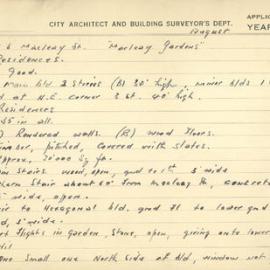 CITY ARCHITECT AND BUILDING SURVEYOR'S DEPT.
APPLIC
August
YEAR
6 Macleay St. "Macleay Gardens"
Residences.
Good.
Main bld 2 Stories (B) 30' high, minor blds 1
at N.E. corner 3 st. 40' high.
Residences
35 in all.
Rendered walls. (B) Wood Floors.
Timber, pitched, covered with slates.
Approx. 30000 sq. ft.
Stairs wood, open, 5' wide
Stair about 60' from Macleay St, concrete
wide, open.
to Hexagonal bld. grd fl to lower grd
5' wide.
flights in Garden, Stone, open, giving onto lower
Nil
One small one North side at bld, window not